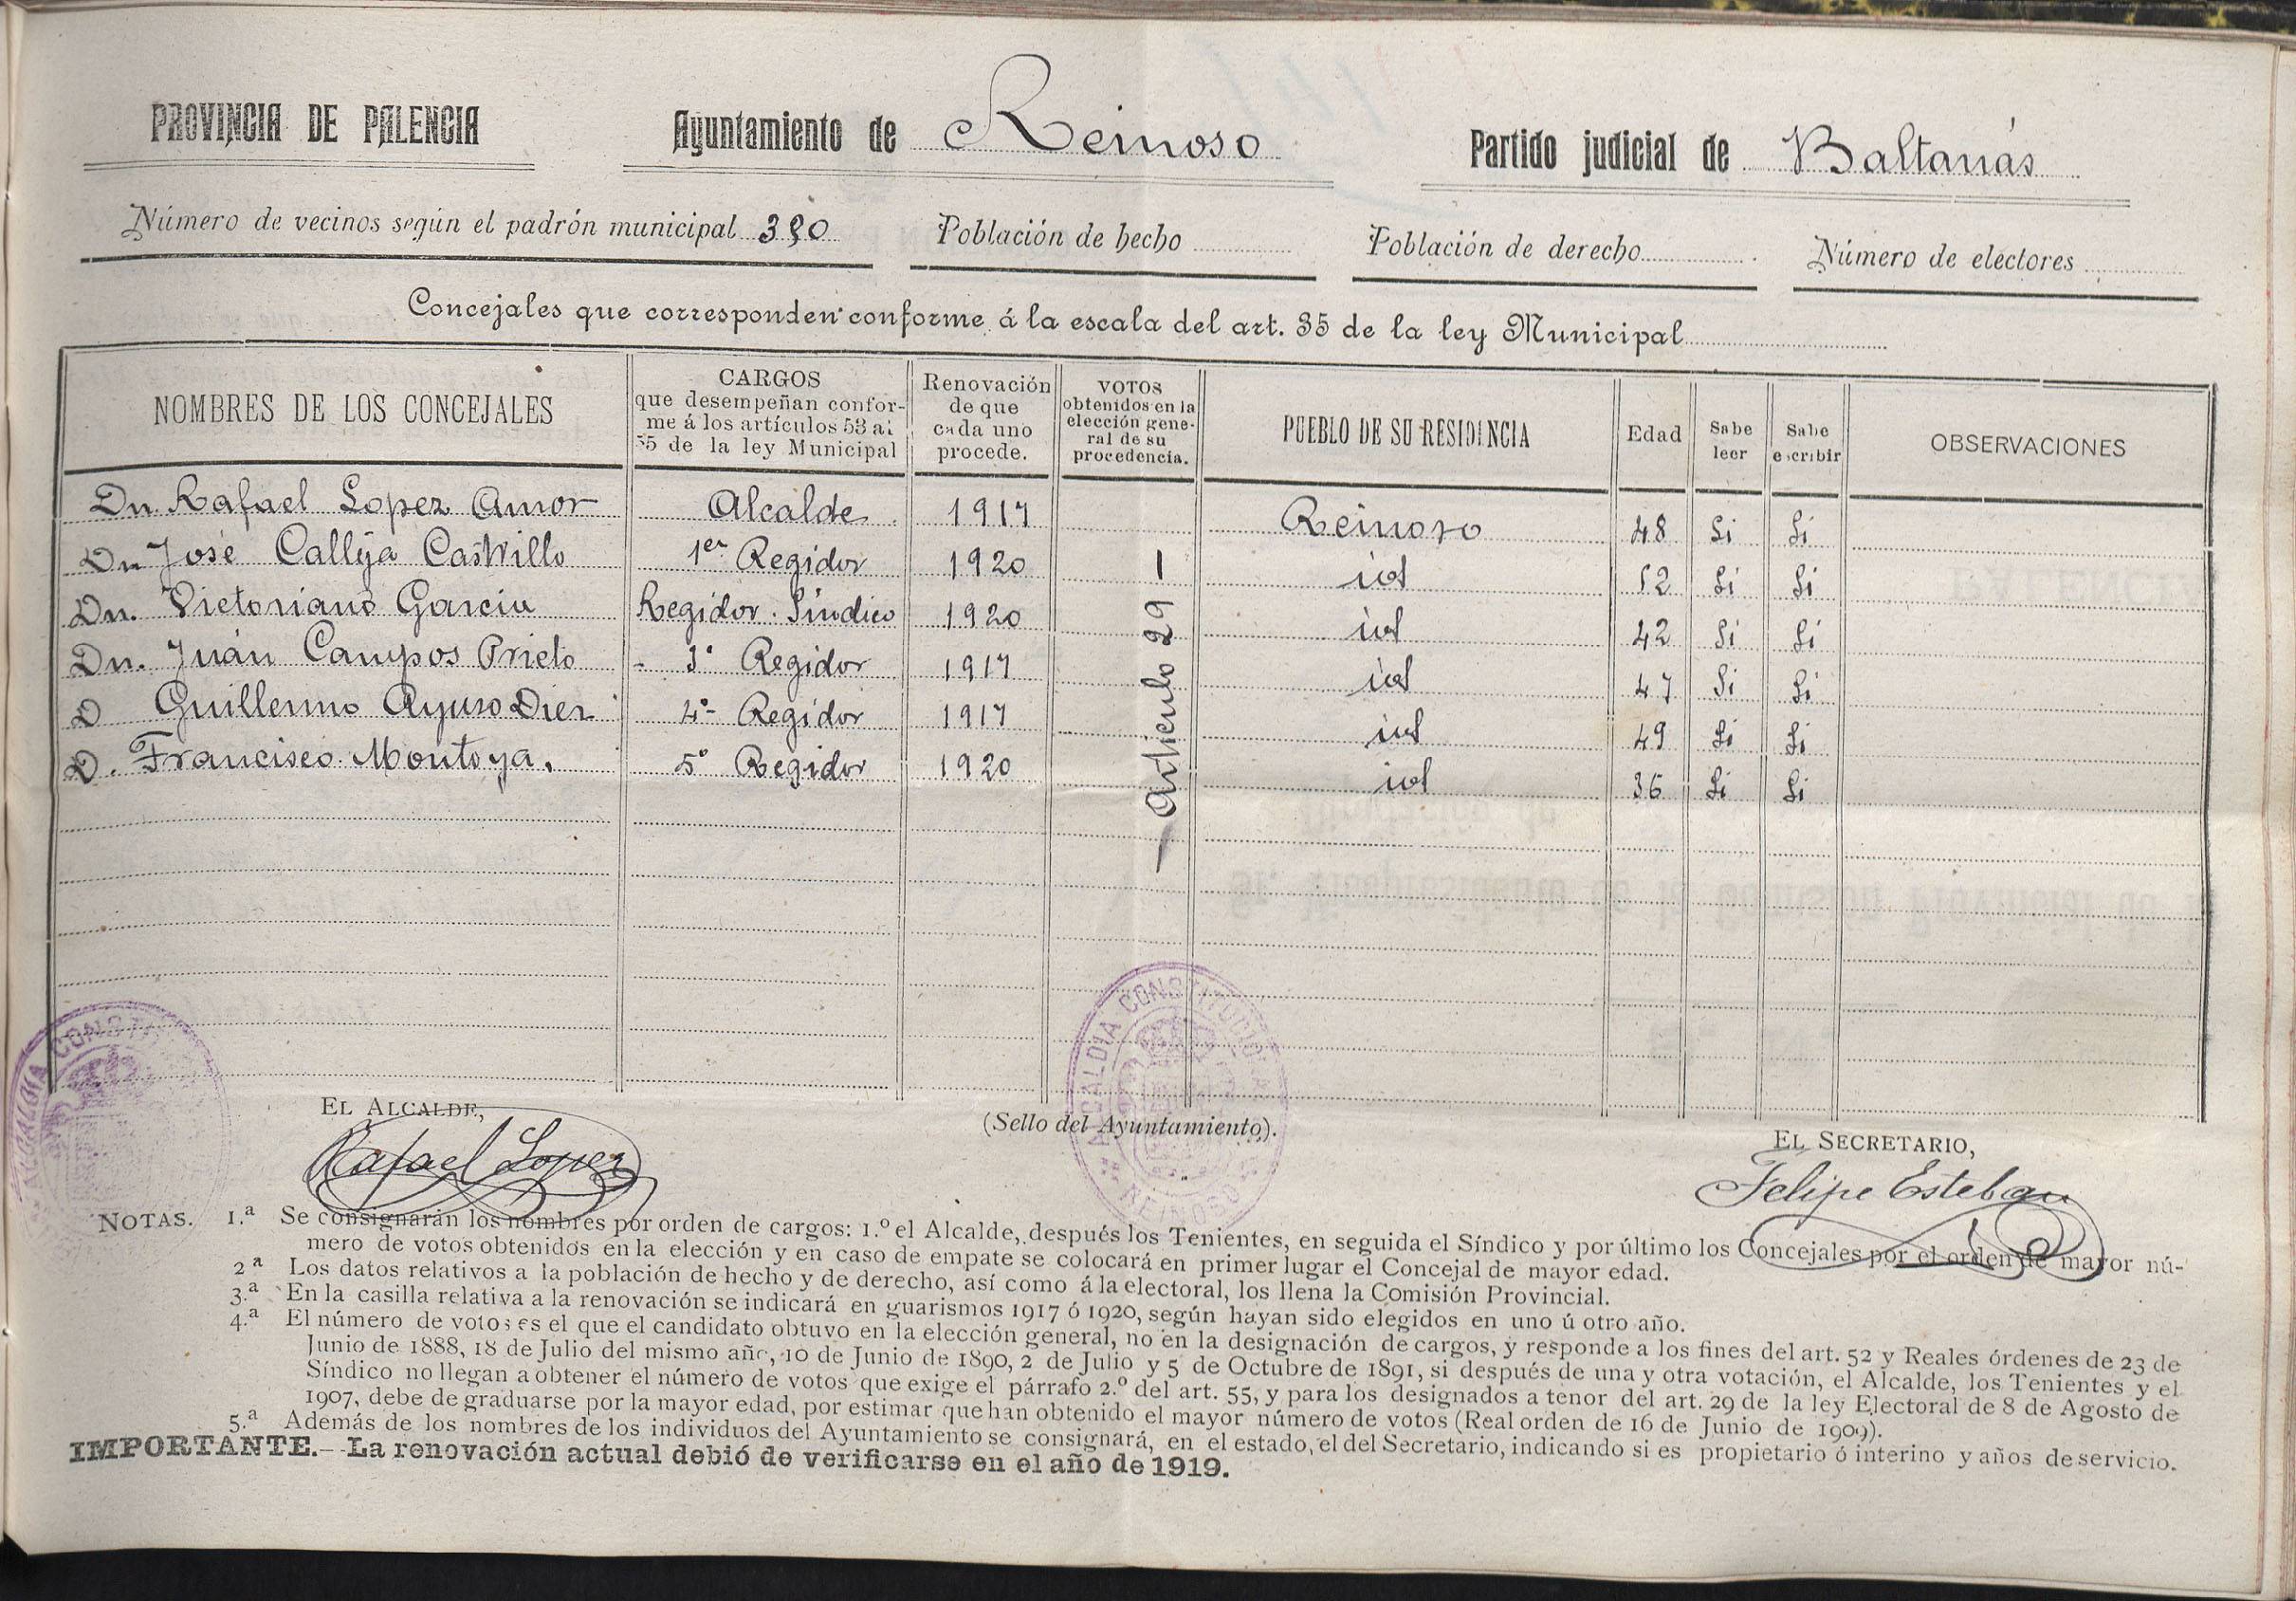 PROVINCIA DE PALENCIA Ayuntamiento de Reinoso Partido judicial de Baltanás
Número de vecinos según el padrón municipal 390 Población de hecho Población de derecho Número de electores
Concejales que corresponden conforme á la escala del art. 35 de la ley Municipal
NOMBRES DE LOS CONCEJALES
CARGOS
que desempeñan confor-
me á los artículos 53 al
55 de la ley Municipal
Renovación
de que
cada uno
procede.
VOTOS
obtenidos en la
elección gene-
ral de su
procedencia.
PUEBLO DE SU RESIDENCIA
Edad
Sabe
leer
Sabe
escribir
OBSERVACIONES
Dn Rafael Lopez Amor Alcalde 1917 Reinoso 48 Si Si
Dn José Calleja Castrillo 1er Regidor 1920 id 52 Si Si
Dn. Victoriano Garcia Regidor Sindico 1920 id 42 Si Si
Dn. Juán Campos Prieto 3º Regidor 1917 id 47 Si Si
D Guillermo Ayuso Diez 4º Regidor 1917 id 49 Si Si
D. Francisco Montoya. 5º Regidor 1920 id 36 Si Si
— Articulo 29 —
ALCALDIA CONSTITUCIONAL
REINOSO
ALCALDIA CONSTI
EL ALCALDE,
Rafael Lopez
(Sello del Ayuntamiento).
EL SECRETARIO,
Felipe Esteban
NOTAS. 1.ª Se consignarán los nombres por orden de cargos: 1.º el Alcalde, después los Tenientes, en seguida el Síndico y por último los Concejales por el orden de mayor nú-
mero de votos obtenidos en la elección y en caso de empate se colocará en primer lugar el Concejal de mayor edad.
2ª Los datos relativos a la población de hecho y de derecho, así como á la electoral, los llena la Comisión Provincial.
3.ª En la casilla relativa a la renovación se indicará en guarismos 1917 ó 1920, según hayan sido elegidos en uno ú otro año.
4.ª El número de votos es el que el candidato obtuvo en la elección general, no en la designación de cargos, y responde a los fines del art. 52 y Reales órdenes de 23 de
Junio de 1888, 18 de Julio del mismo año, 10 de Junio de 1890, 2 de Julio y 5 de Octubre de 1891, si después de una y otra votación, el Alcalde, los Tenientes y el
Síndico no llegan a obtener el número de votos que exige el párrafo 2.º del art. 55, y para los designados a tenor del art. 29 de la ley Electoral de 8 de Agosto de
1907, debe de graduarse por la mayor edad, por estimar que han obtenido el mayor número de votos (Real orden de 16 de Junio de 1909).
5.ª Además de los nombres de los individuos del Ayuntamiento se consignará, en el estado, el del Secretario, indicando si es propietario ó interino y años de servicio.
IMPORTANTE.—La renovación actual debió de verificarse en el año de 1919.